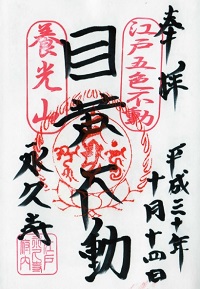 奉拝
江戸五色不動
平成三十年
十月十四日
目黄不動
養光山
永久寺
江戸
永久寺
府内